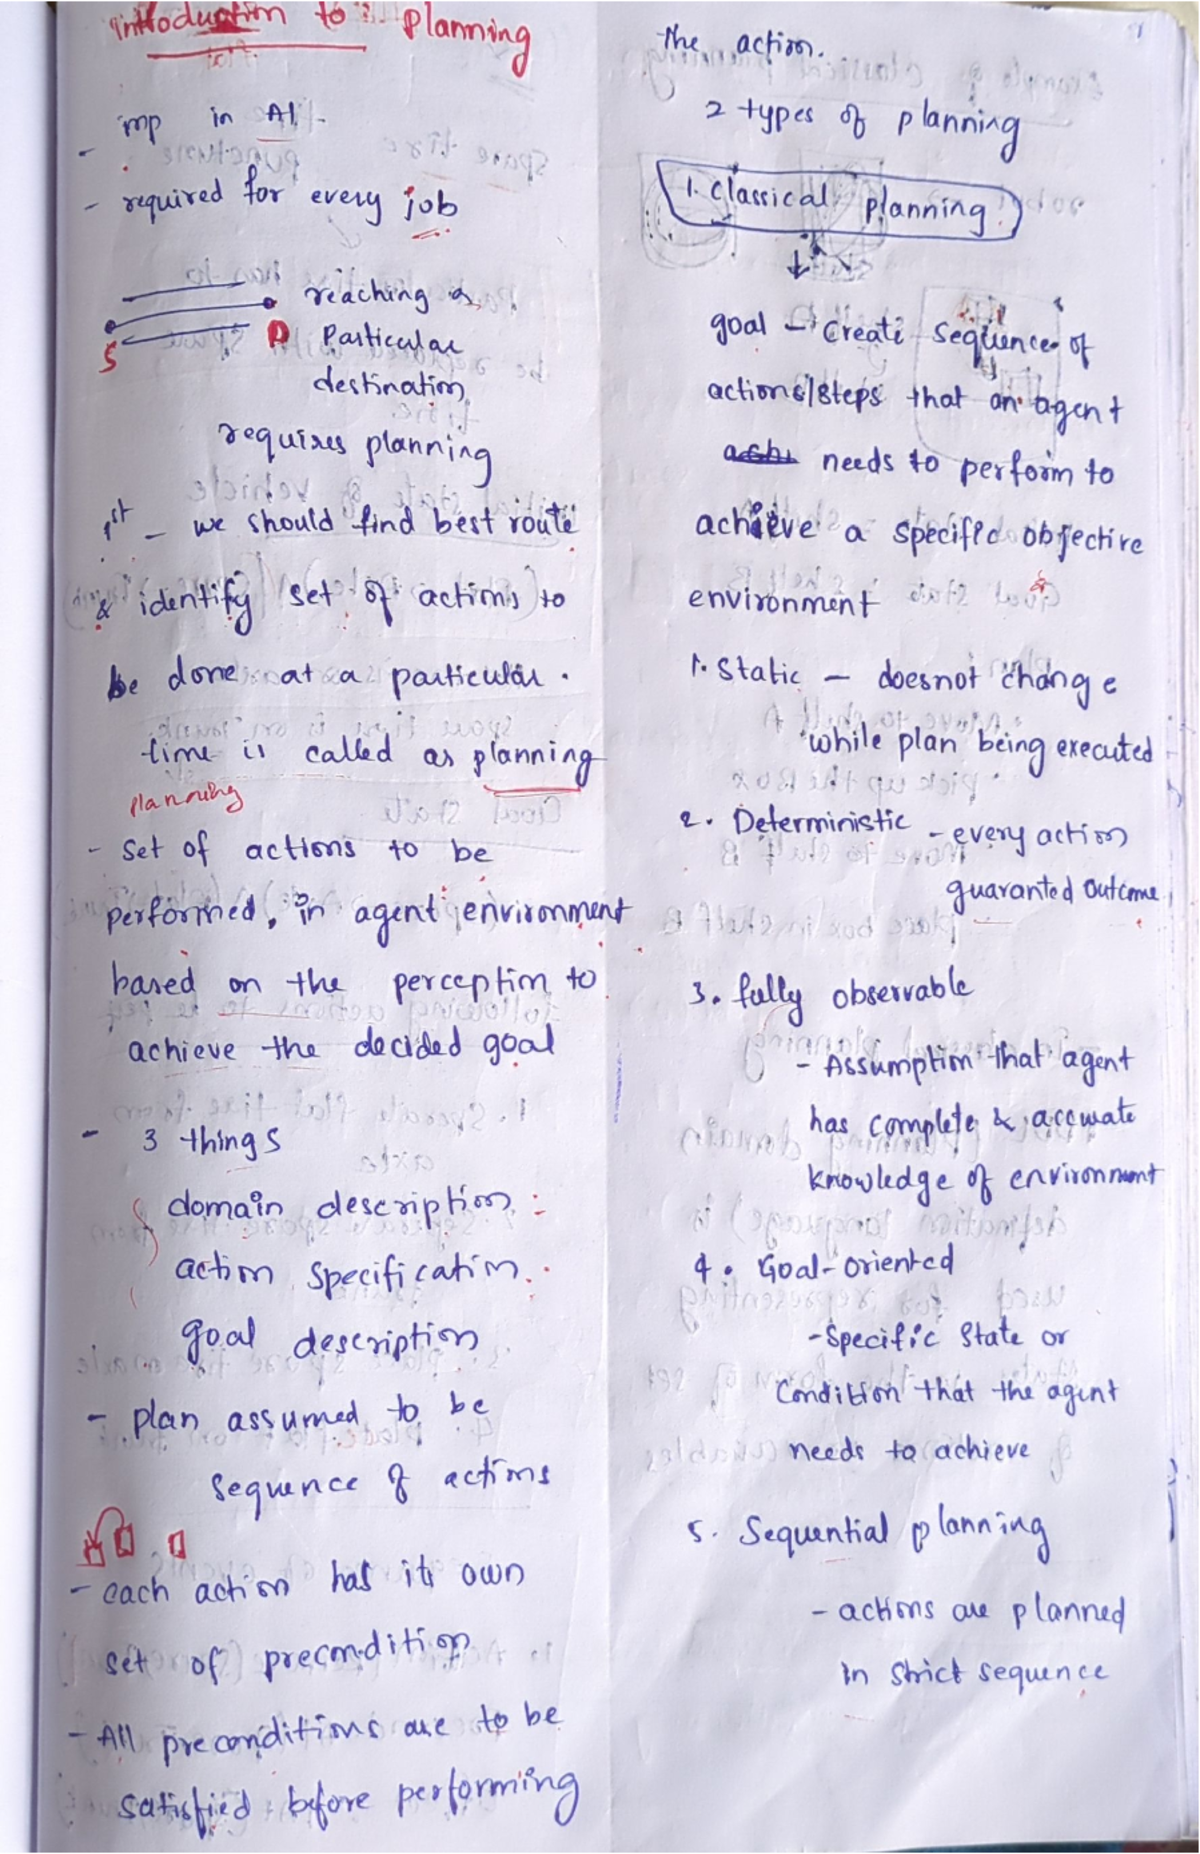 introduction to planning
- imp in AI -
- required for every job
reaching a
S D Particular
destination
requires planning
1st - we should find best route
& identify set of actions to
be done at a particular.
time is called as planning
planning
- set of actions to be
performed, in agent environment
based on the perception to
achieve the decided goal
- 3 things
domain description
action specification
goal description
- plan assumed to be
sequence of actions
- each action has its own
set of precondition
- All preconditions are to be
satisfied before performing
the action.
2 types of planning
1. classical planning
goal - create sequence of
actions/steps that an agent
needs to perform to
achieve a specific objective
environment
1. Static - doesnot change
while plan being executed
2. Deterministic - every action
guaranted outcome
3. fully observable
- Assumption that agent
has complete & accurate
knowledge of environment
4. Goal-oriented
- Specific State or
Condition that the agent
needs to achieve
5. Sequential planning
- actions are planned
in strict sequence